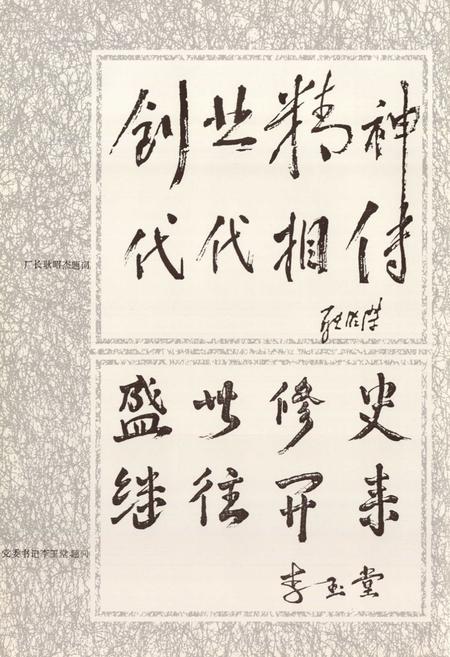 创业精神
代代相传
耿昭杰
厂长耿昭杰题词
盛世修史
继往开来
李玉堂
党委书记李玉堂题词